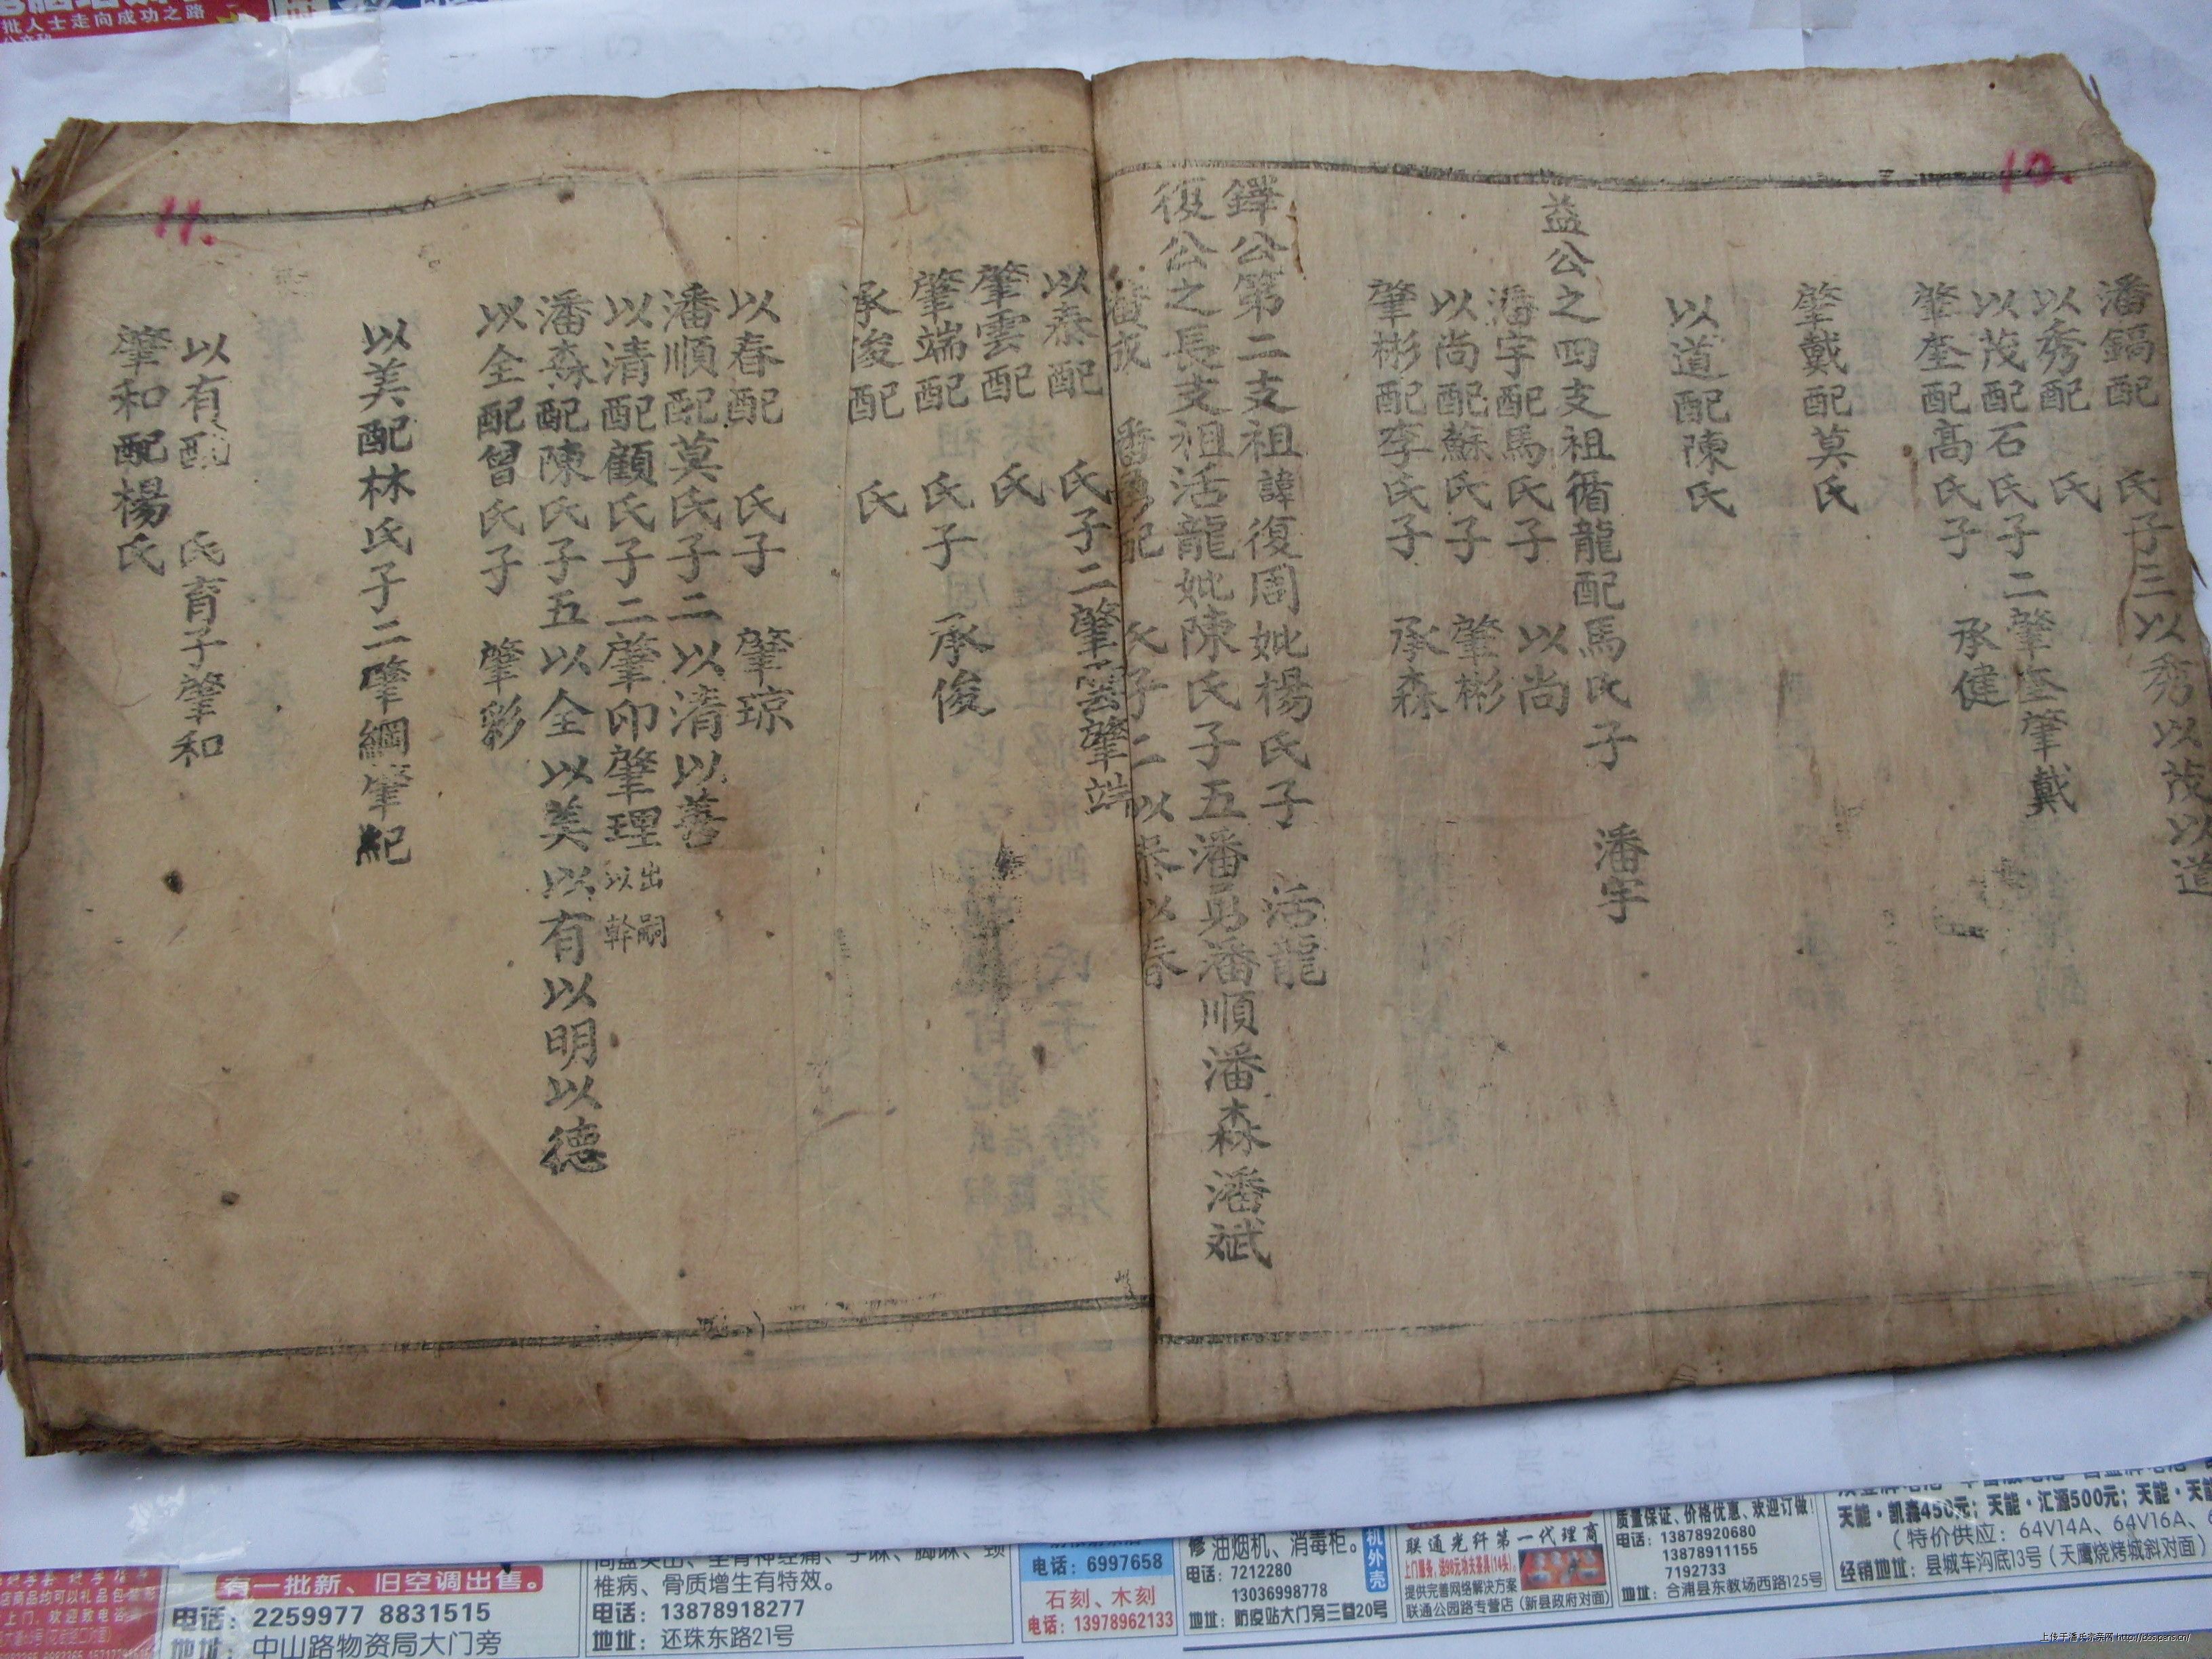 10.
潘鎬配 氏子三以秀以茂以道
以秀配 氏
以茂配石氏子二肇奎肇戴
肇奎配高氏子 承健
肇戴配莫氏
以道配陳氏
益公之四支祖循龍配馬氏子 潘宇
潘宇配馬氏子 以尚
以尚配蘇氏子 肇彬
肇彬配李氏子 承森
鐸公第二支祖諱復周妣楊氏子 活龍
復公之長支祖活龍妣陳氏子五潘勇潘順潘森潘斌
配 氏子二以泰以春
11.
以泰配 氏子二肇雲肇端
肇雲配 氏
肇端配 氏子 承俊
承俊配 氏
以春配 氏子 肇琼
潘順配莫氏子二以清以善
以清配顧氏子二肇印肇理出嗣以幹
潘森配陳氏子五以全以美以有以明以德
以全配曾氏子 肇彩
以美配林氏子二肇綱肇紀
以有配 氏育子肇和
肇和配楊氏
批人士走向成功之路
有一批新、旧空调出售。
电话：2259977 8831515
地址：中山路物资局大门旁
椎病、骨质增生有特效。
电话：13878918277
地址：还珠东路21号
电话：6997658
石刻、木刻
电话：13978962133
修油烟机、消毒柜。
电话：7212280
13036998778
地址：防疫站大门旁三巷20号
机外壳
联通光纤第一代理商
提供完善网络解决方案
联通公园路专营店（新县政府对面）
质量保证、价格优惠、欢迎订做！
电话：13878920680
13878911155
7192733
地址：合浦县东教场西路125号
天能·凯森450元；天能·汇源500元；天能·天能
（特价供应：64V14A、64V16A、
经销地址：县城车沟底13号（天鹰烧烤城斜对面）
上传于潘氏宗亲网